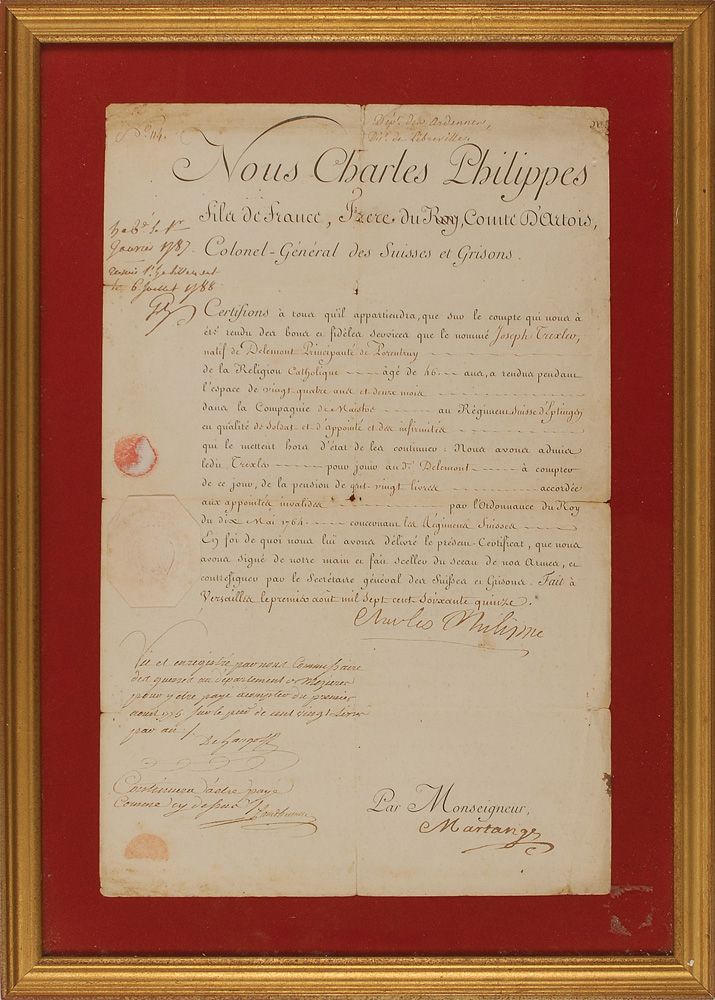 N.° 114.
Dép.t des Ardennes,
D.t de Libreville.
Nous Charles Philippes
Fils de France, Frère du Roy, Comte D'Artois,
Colonel-Général des Suisses et Grisons.
hab.é le 1er
Janvier 1787.
le 6 Juillet 1788
Certifions à tous qu'il appartiendra, que sur le compte qui nous à
été rendu des bons et fidèles services que le nommé Joseph Trexler,
natif de Délemont Principauté de Porentruy
de la Religion Catholique âgé de 46 ans, a rendus pendant
l'espace de vingt-quatre ans et deux mois
dans la Compagnie de Maistre au Régiment Suisse d'Eptingen
en qualité de Soldat et d'appointé et des infirmités
qui le mettent hors d'état de les continuer : Nous avons admis
ledit Trexler pour jouir au d.t Délemont à compter
de ce jour, de la pension de cent-vingt livres accordée
aux appointés invalides par l'Ordonnance du Roy
du dix Mai 1764 concernant les Régimens Suisses
En foi de quoi nous lui avons délivré le présent Certificat, que nous
avons signé de notre main et fait sceller du sceau de nos Armes, et
contresigner par le Secrétaire général des Suisses et Grisons. Fait à
Versailles le premier août mil sept cent soixante quinze.
Charles Philippe
Vû et enregistré par nous Commissaire
des guerres au département de Mezieres
pour y etre payé acompter du premier
aoust 1775 sur le pied de cent vingt livres
par an
Continuera d'être payé
Comme cy dessus
Par Monseigneur,
Martange